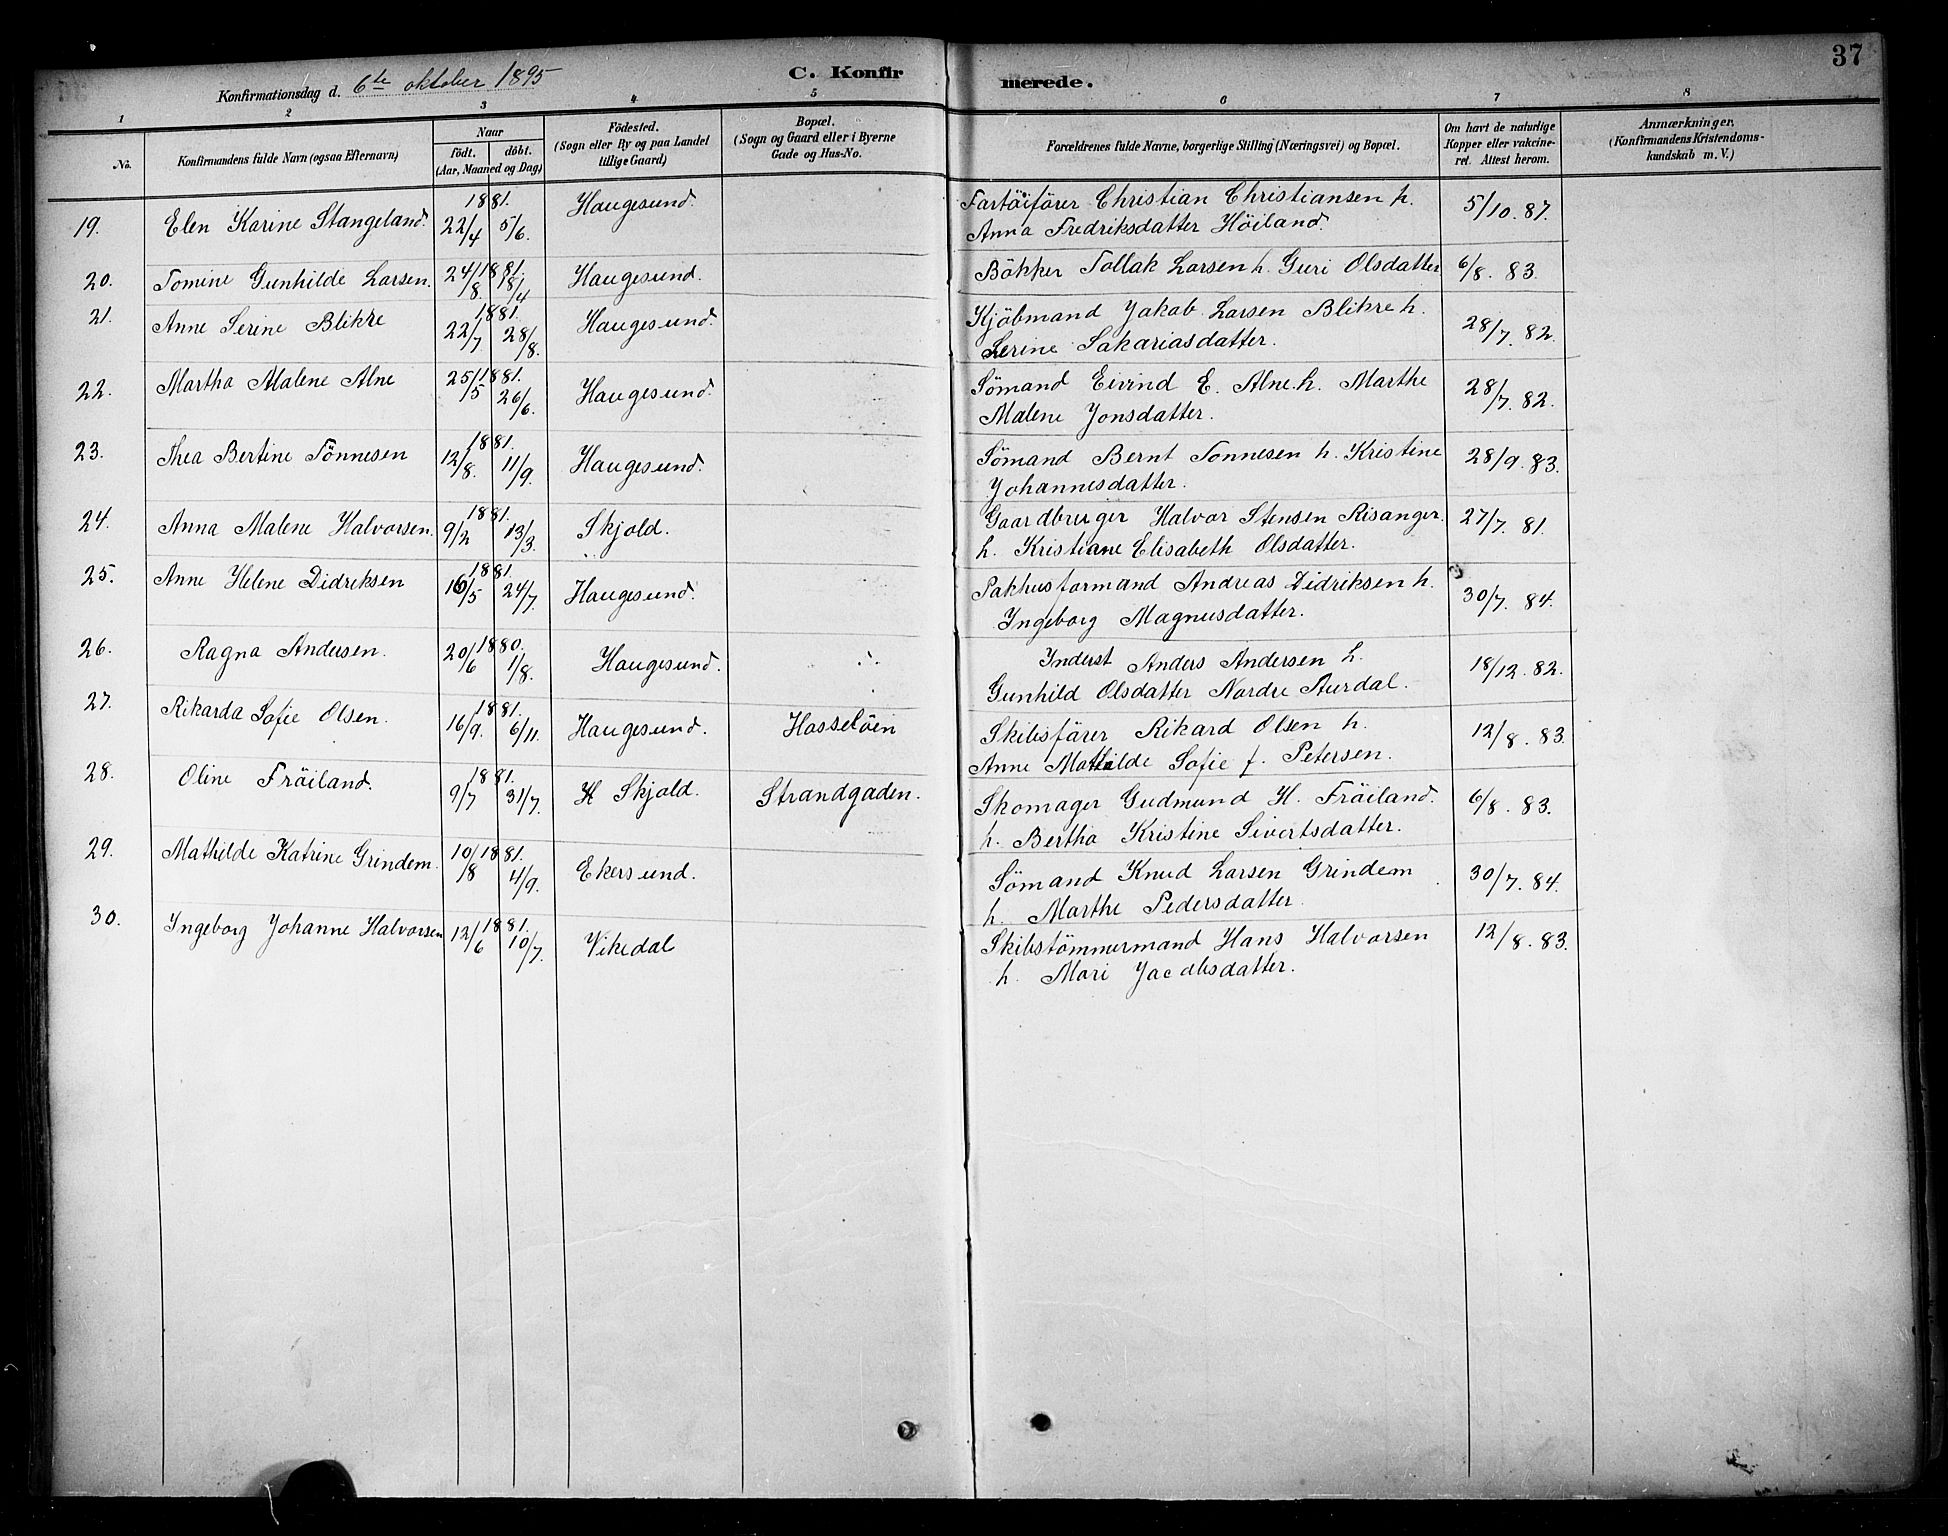 37
Konfirmationsdag d. 6te oktober 1895
C. Konfirmerede.
1 2 3 4 5 6 7 8
No.
Konfirmandens fulde Navn (ogsaa Efternavn)
Naar
Födt. döbt.
(Aar, Maaned og Dag)
Födested.
(Sogn eller By og paa Landet
tillige Gaard)
Bopæl.
(Sogn og Gaard eller i Byerne
Gade og Hus-No.
Forældrenes fulde Navne, borgerlige Stilling (Næringsvei) og Bopæl.
Om havt de naturlige
Kopper eller vakcine-
ret. Attest herom.
Anmærkninger.
(Konfirmandens Kristendoms-
kundskab m. V.)
19. Elen Karine Stangeland. 1881. 22/4 5/6. Haugesund. Fartöifören Christian Christiansen h. 5/10. 87.
Anna Fredriksdatter Höiland.
20. Tomine Gunhilde Larsen. 1881. 24/8. 18/4 Haugesund. Bökker Tollak Larsen h. Guri Olsdatter 6/8. 83.
21. Anne Serine Blikre 1881. 22/7 28/8. Haugesund. Kjöbmand Jakob Larsen Blikre h. 28/7. 82.
Serine Sakariasdatter.
22. Martha Malene Alne 1881. 25/5 26/6. Haugesund. Sömand Eivind E. Alne h. Marthe 28/7. 82.
Malene Jonsdatter.
23. Thea Bertine Tönnesen 1881. 12/8. 11/9. Haugesund. Sömand Bernt Tonnesen h. Kristine 28/9. 83.
Johannesdatter.
24. Anna Malene Halvorsen. 1881. 9/2 13/3. Skjold. Gaardbruger Halvor Stensen Risanger. 27/7. 81.
h. Kristiane Elisabeth Olsdatter.
25. Anne Helene Didriksen 1881. 16/5 24/7. Haugesund. Pakhusformand Andreas Didriksen h. 30/7. 84.
Ingeborg Magnusdatter.
26. Ragna Andersen. 1880. 20/6 1/8. Haugesund. Inderst Anders Andersen h. 18/12. 82.
Gunhild Olsdatter Nordre Aurdal.
27. Rikarda Sofie Olsen. 1881. 16/9. 6/11. Haugesund. Hasselöen Skibsförer Rikard Olsen h. 12/8. 83.
Anne Mathilde Sofie f. Petersen.
28. Oline Fröiland. 1881. 9/7 31/7. H Skjold. Strandgaden. Skomager Gudmund H. Fröiland. 6/8. 83.
h. Bertha Kristine Sivertsdatter.
29. Mathilde Katrine Grindem. 1881. 10/8 4/9. Ekersund. Sömand Knud Larsen Grindem 30/7. 84.
h. Marthe Pedersdatter.
30. Ingeborg Johanne Halvorsen 1881. 12/6 10/7. Vikedal Skibstömmermand Hans Halvorsen 12/8. 83.
h. Mari Jacobsdatter.